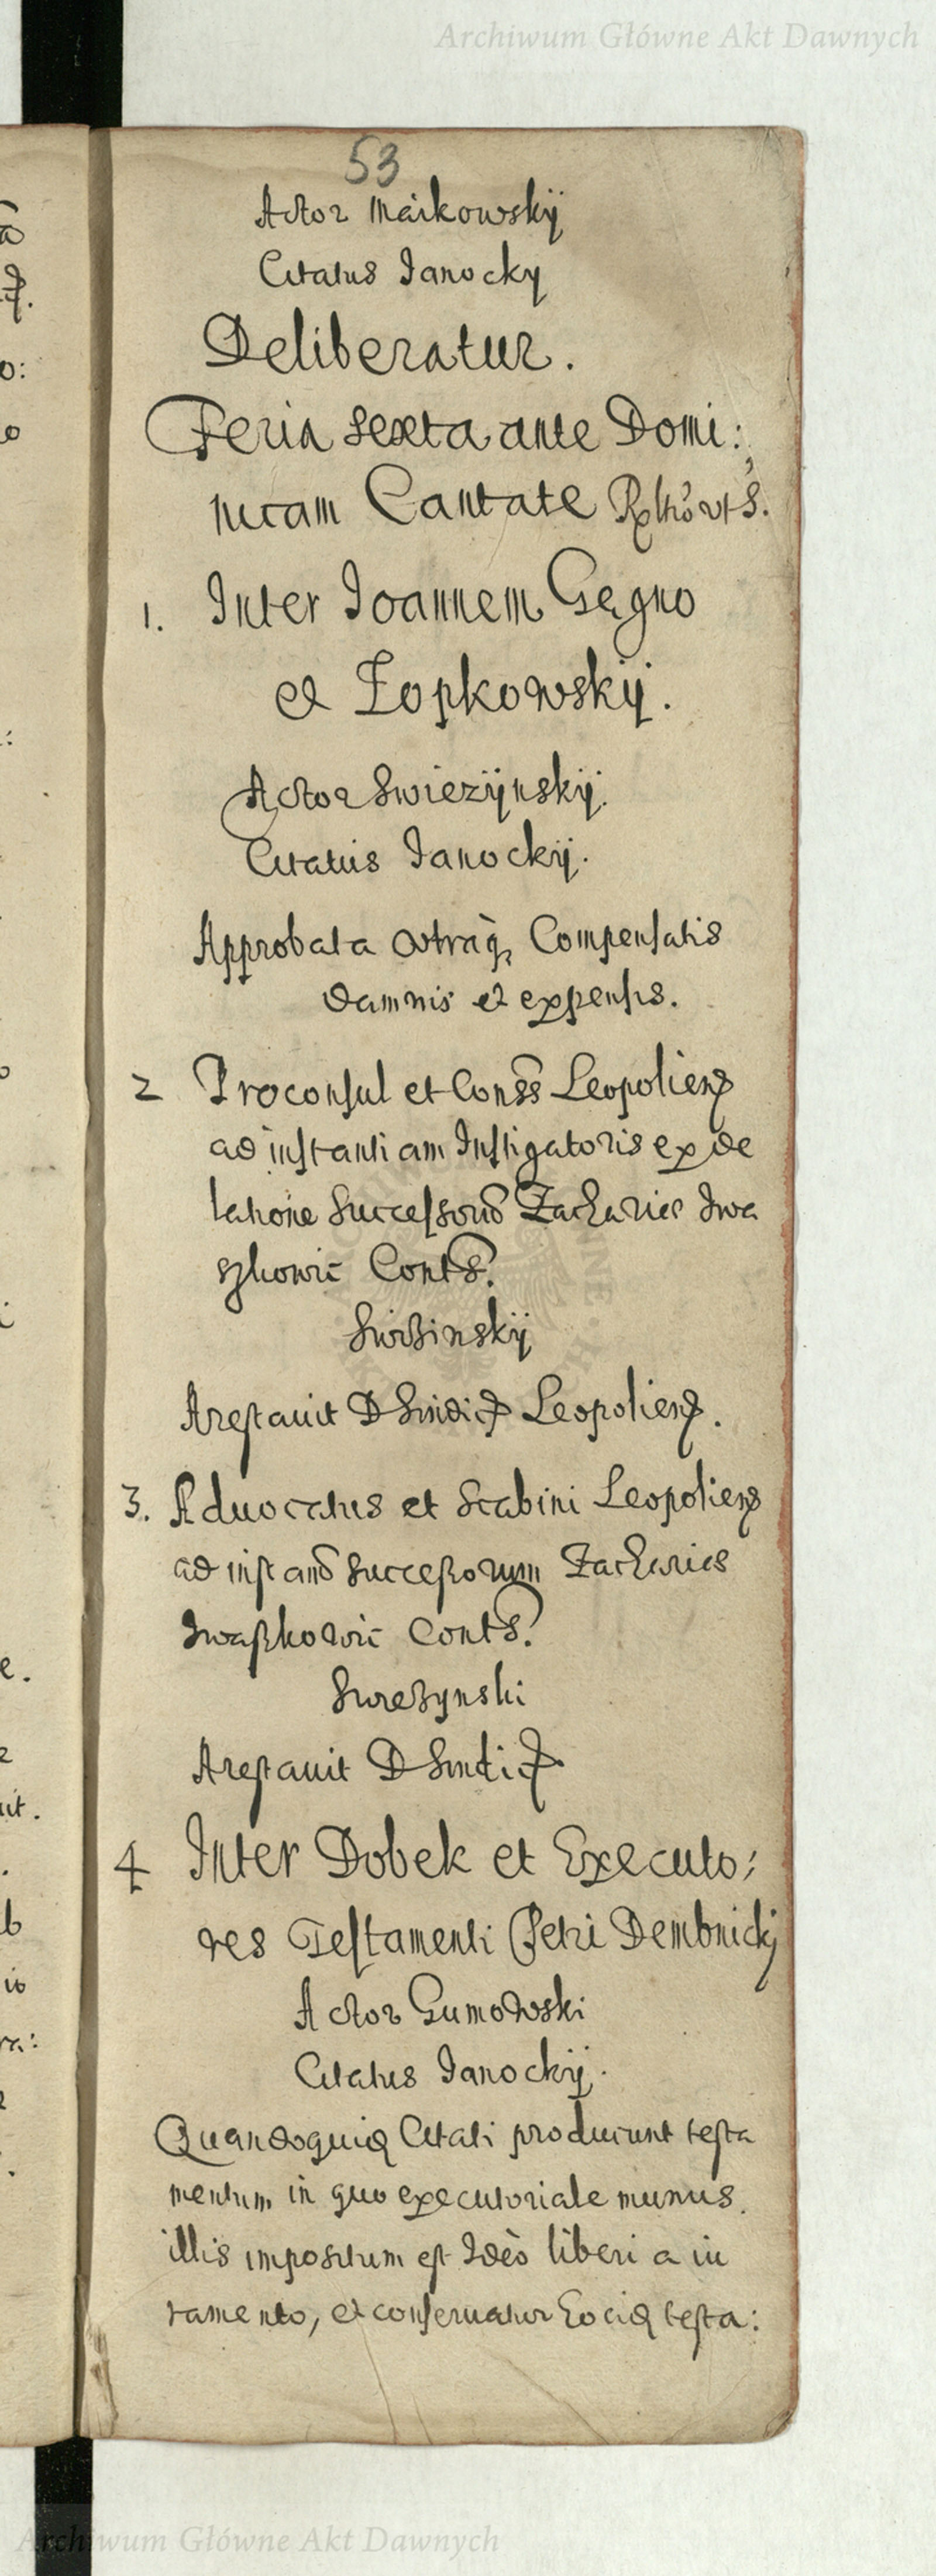 Archiwum Główne Akt Dawnych
53
Actor Maikowskÿ
Citatus Janocky
Deliberatur.
Feria sexta ante Domi:
nicam Cantate
1. Inter Joannem Gęgno
et Łopkowskij.
Actor Swiezÿnskij.
Citatus Janockij.
Approbata vtraq, Compensatis
damnis et expensis.
2 Proconsul et Conss Leopoliens
ad instantiam Instigatoris ex de
latione Successorũ Zachariæ Iwa
szkowic Conts.
Swiszinskÿ
Arestauit D Sindic9 Leopoliens.
3. Aduocatus et Scabini Leopoliens
ad instanã Successorum Zachariæs
Iwaszkowic Conts.
Swieszynski
Arestauit D Sindic9
4 Inter Dobek et Executo:
res Testamenti Petri Dembnickÿ
Actor Gumowski
Citatus Janockij.
Quandoquid Citati producunt testa
mentum in quo executoriale munus
illis impositum est Ideò liberi a iu
ramento, et conseruatur testa:
Archiwum Główne Akt Dawnych